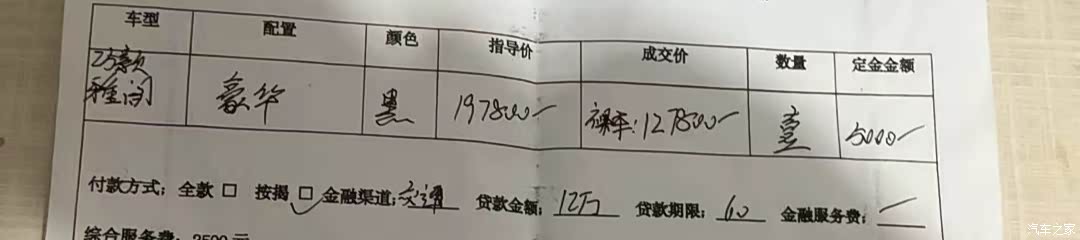 车型 配置 颜色 指导价 成交价 数量 定金金额
25款
雅阁 豪华 黑 197800 裸车:127800 壹 5000
付款方式:全款 □ 按揭 □ 金融渠道:交通 贷款金额:12万 贷款期限:60 金融服务费:
综合服务费:3500元
汽车之家